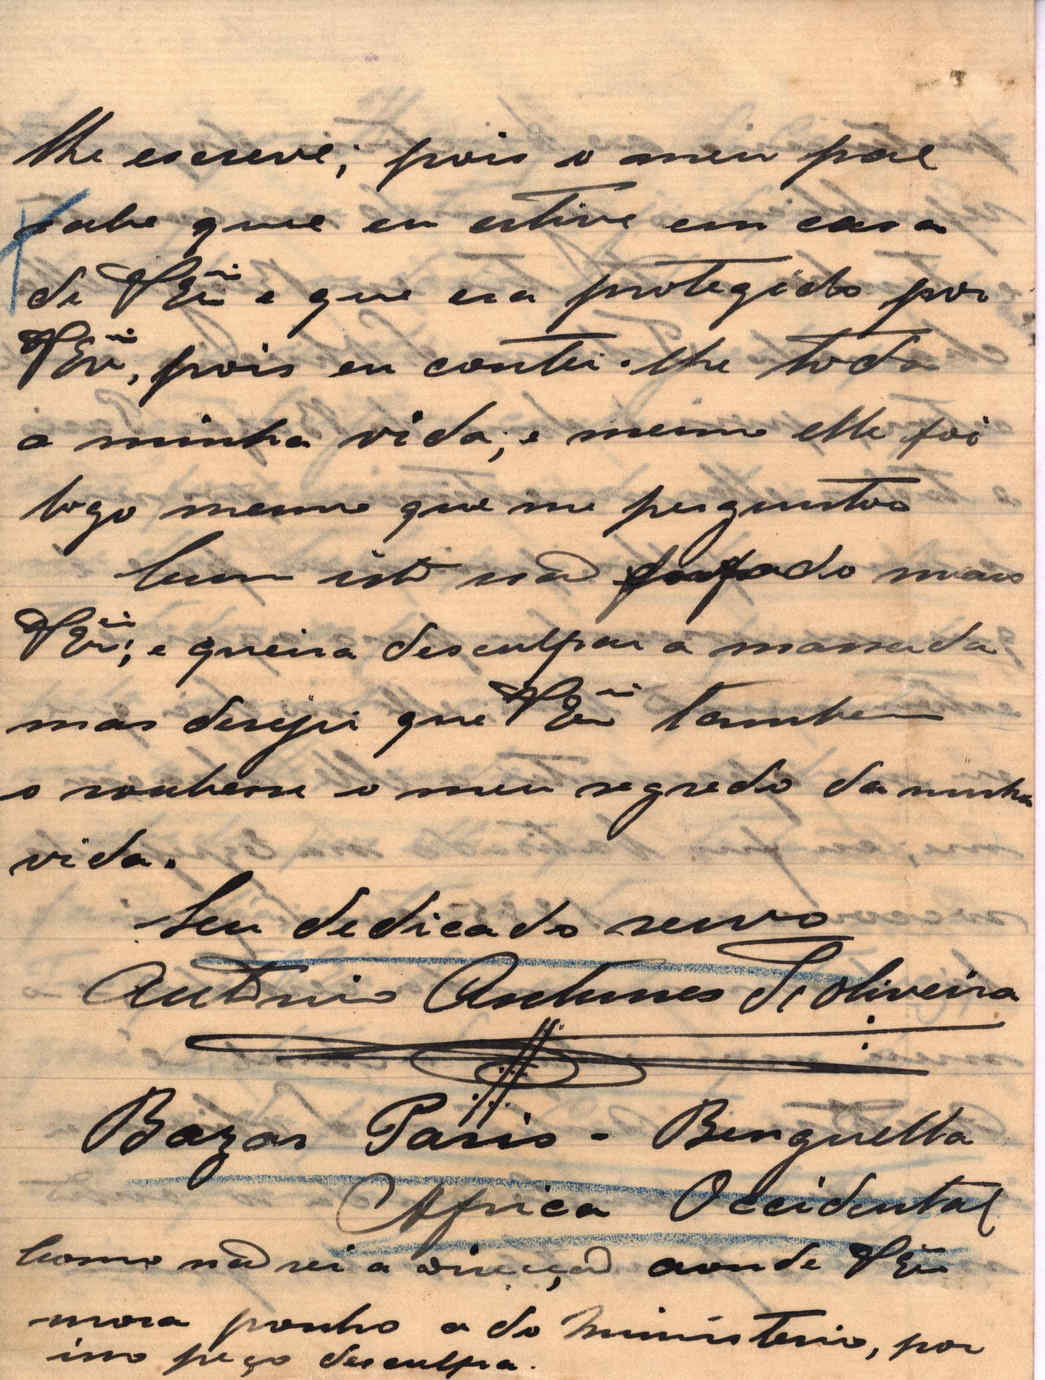 lhe escreve; pois o meu pae
sabe que eu estive em casa
de V Exª e que era protegido por
V Exª, pois eu contei-lhe toda
a minha vida; e mesmo elle foi
logo mesmo que me perguntou
Com isto não enfado mais
V Exª; e queira desculpar a massada
mas desejei que V Exª tambem
o soubesse o meu segredo da minha
vida.
Seu dedicado servo
Antonio Antunes d'Oliveira
Bazar Paris - Benguella
Africa Occidental
Como não sei a direcção aonde V Exª
mora ponho a do Ministerio, por
isso peço desculpa.